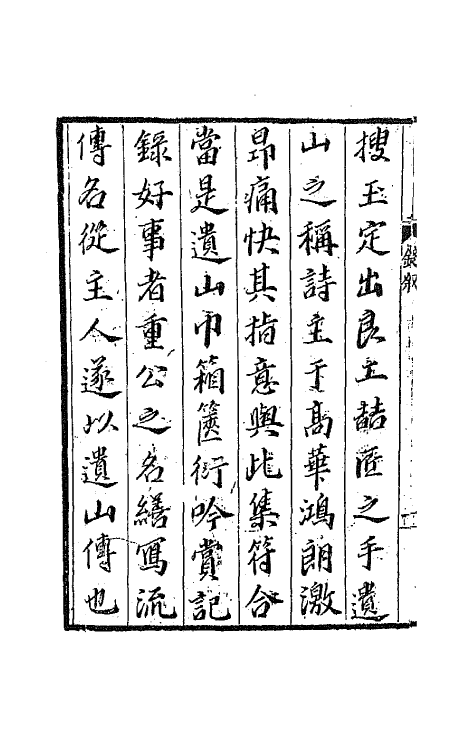 搜玉定出良工喆匠之手遺
山之稱詩主于高華鴻朗激
昂痛快其指意與此集符合
當是遺山巾箱篋衍吟賞記
錄好事者重公之名繕寫流
傳名從主人遂以遺山傳也